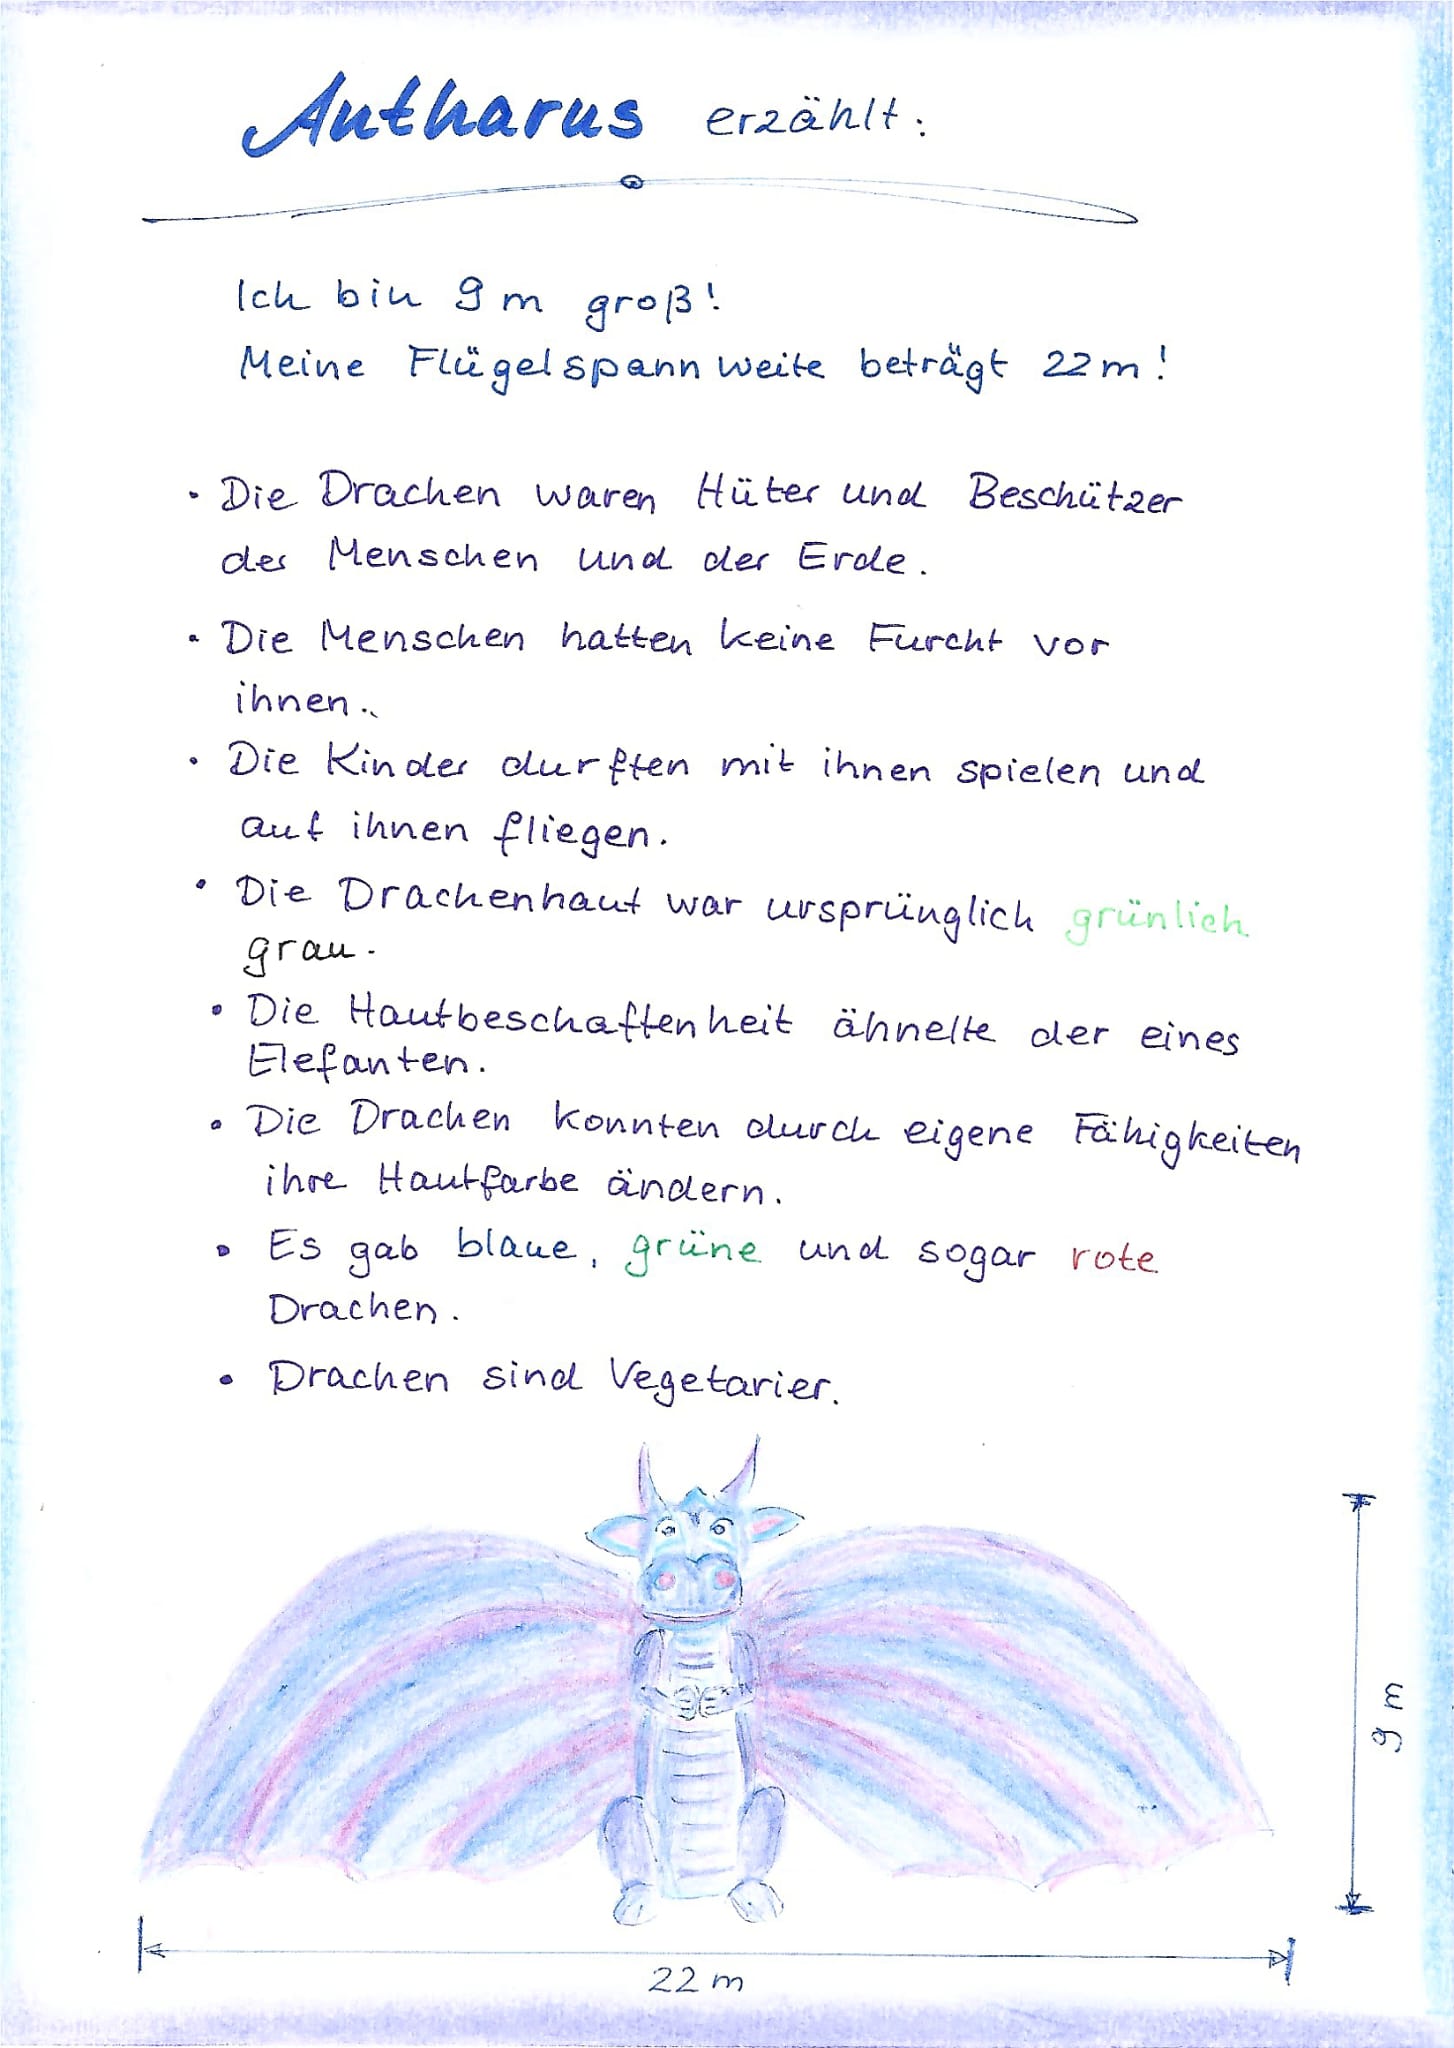 Antharus erzählt:
Ich bin 9 m groß!
Meine Flügelspannweite beträgt 22 m!
• Die Drachen waren Hüter und Beschützer
der Menschen und der Erde.
• Die Menschen hatten keine Furcht vor
ihnen.
• Die Kinder durften mit ihnen spielen und
auf ihnen fliegen.
• Die Drachenhaut war ursprünglich grünlich
grau.
• Die Hautbeschaffenheit ähnelte der eines
Elefanten.
• Die Drachen konnten durch eigene Fähigkeiten
ihre Hautfarbe ändern.
• Es gab blaue, grüne und sogar rote
Drachen.
• Drachen sind Vegetarier.
9 m
22 m